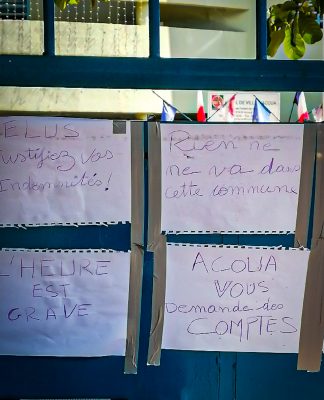 L DE VILLE
ELUS
Justifiez vos
Indemnités!
Rien ne
ne va dans
cette commune
L'HEURE
EST
GRAVE
ACOUA
VOUS
Demande des
COMPTES